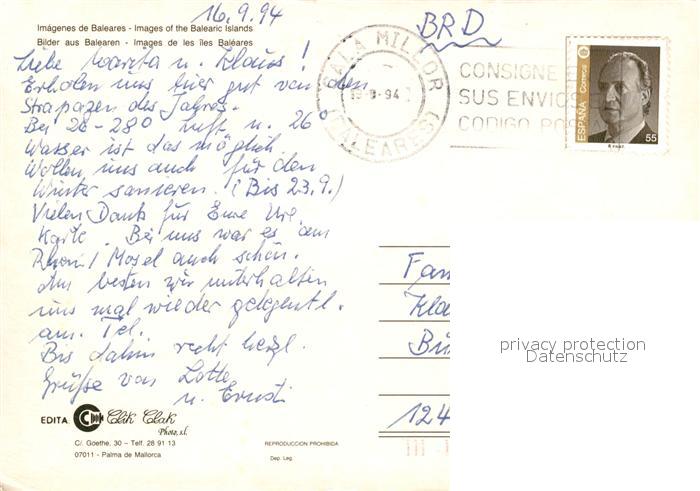 16.9.94
BRD
Imágenes de Baleares - Images of the Balearic Islands
Bilder aus Balearen - Images de les îles Baléares
Liebe Marita u. Klaus!
Erholen uns hier gut von den
Strapazen des Jahres.
Bei 26-28° Luft u. 26°
Wasser ist das möglich.
Wollen uns auch für den
Winter sanieren. (Bis 23.9.)
Vielen Dank für Eure
Karte. Bei uns war es am
Rhein / Mosel auch schön.
Am besten wir unterhalten
uns mal wieder gelegentl.
am Tel.
Bis dahin recht herzl.
Grüße von Lotte
u. Ernst
CALA MILLOR
(BALEARES)
-94
CONSIGNE E
SUS ENVIOS
CODIGO POS
ESPAÑA Correos
55
Fam
Kla
Bü
124
privacy protection
Datenschutz
EDITA: Clik Clak
Photo, s.l.
C/. Goethe, 30 - Telf. 28 91 13
07011 - Palma de Mallorca
REPRODUCCION PROHIBIDA
Dep. Leg.